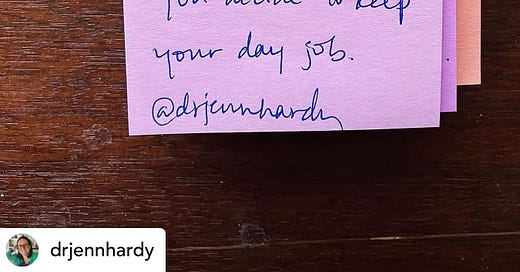 you decide to keep
your day job.
@drjennhardy
drjennhardy